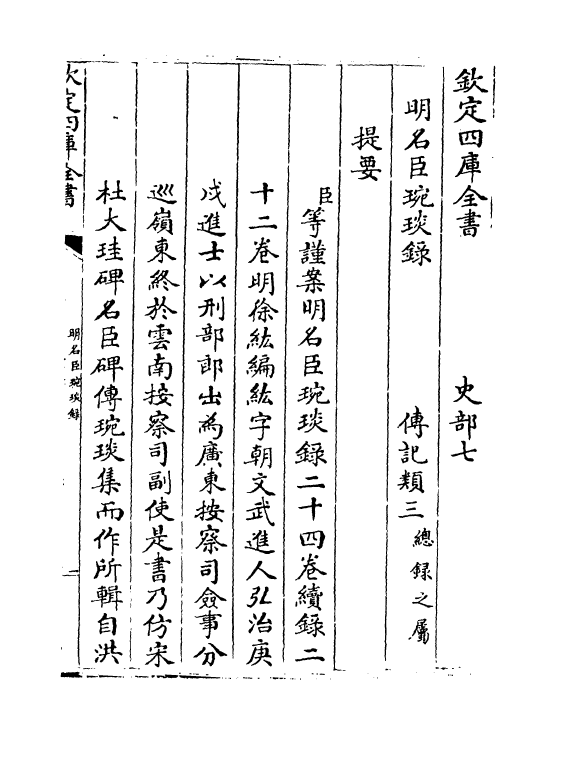 欽定四庫全書　史部七
明名臣琬琰錄　傳記類三總錄之屬
提要
臣等謹案明名臣琬琰錄二十四卷續錄二
十二卷明徐紘編紘字朝文武進人弘治庚
戍進士以刑部郎出為廣東按察司僉事分
巡嶺東終於雲南按察司副使是書乃仿宋
杜大珪碑名臣碑傳琬琰集而作所輯自洪
欽定四庫全書　明名臣琬琰錄